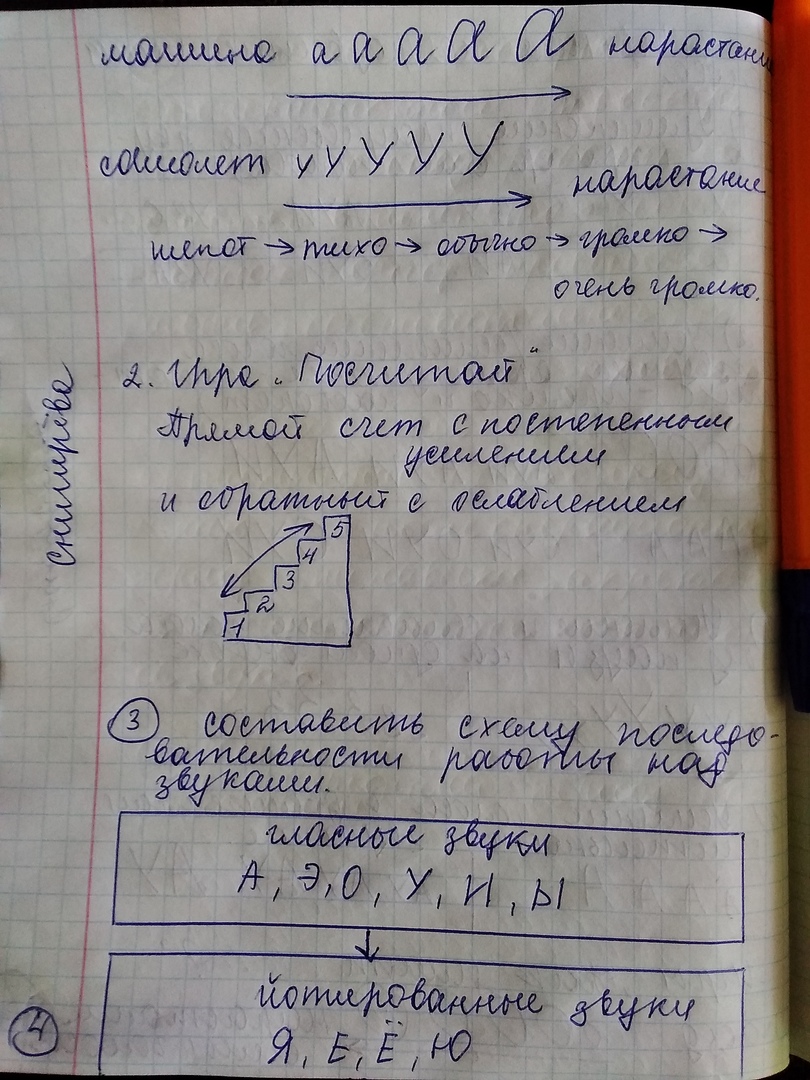 машина а а а а а нарастани
самолет У У У У У
нарастание
шепот → тихо → обычно → громко →
очень громко.
2. Игра „Посчитай“
Прямой счет с постепенным
усилением
и обратный с ослаблением
5
4
3
2
1
3 составить схему последо-
вательности работы над
звуками.
гласные звуки
А, Э, О, У, И, Ы
йотированные звуки
Я, Е, Ё, Ю
4